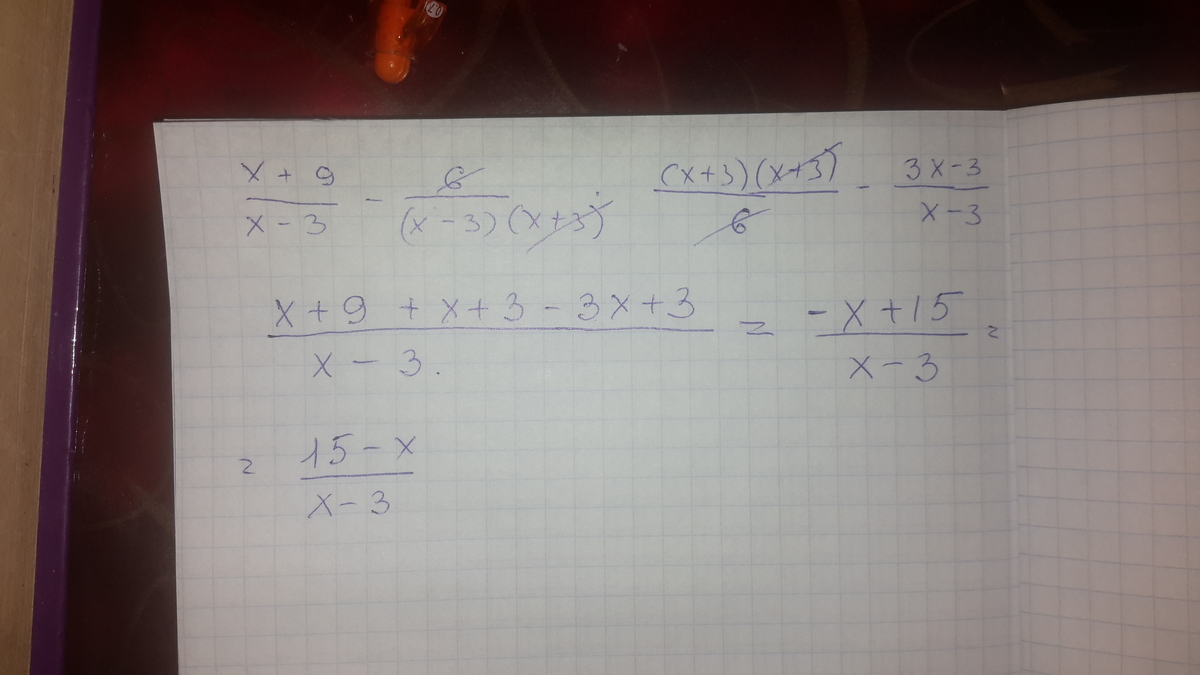 x + 9 / x - 3 - 6 / (x - 3)(x+3) · (x+3)(x+3) / 6 - 3x-3 / x-3
x + 9 + x + 3 - 3x + 3 / x - 3. = -x + 15 / x - 3 =
= 15 - x / x - 3